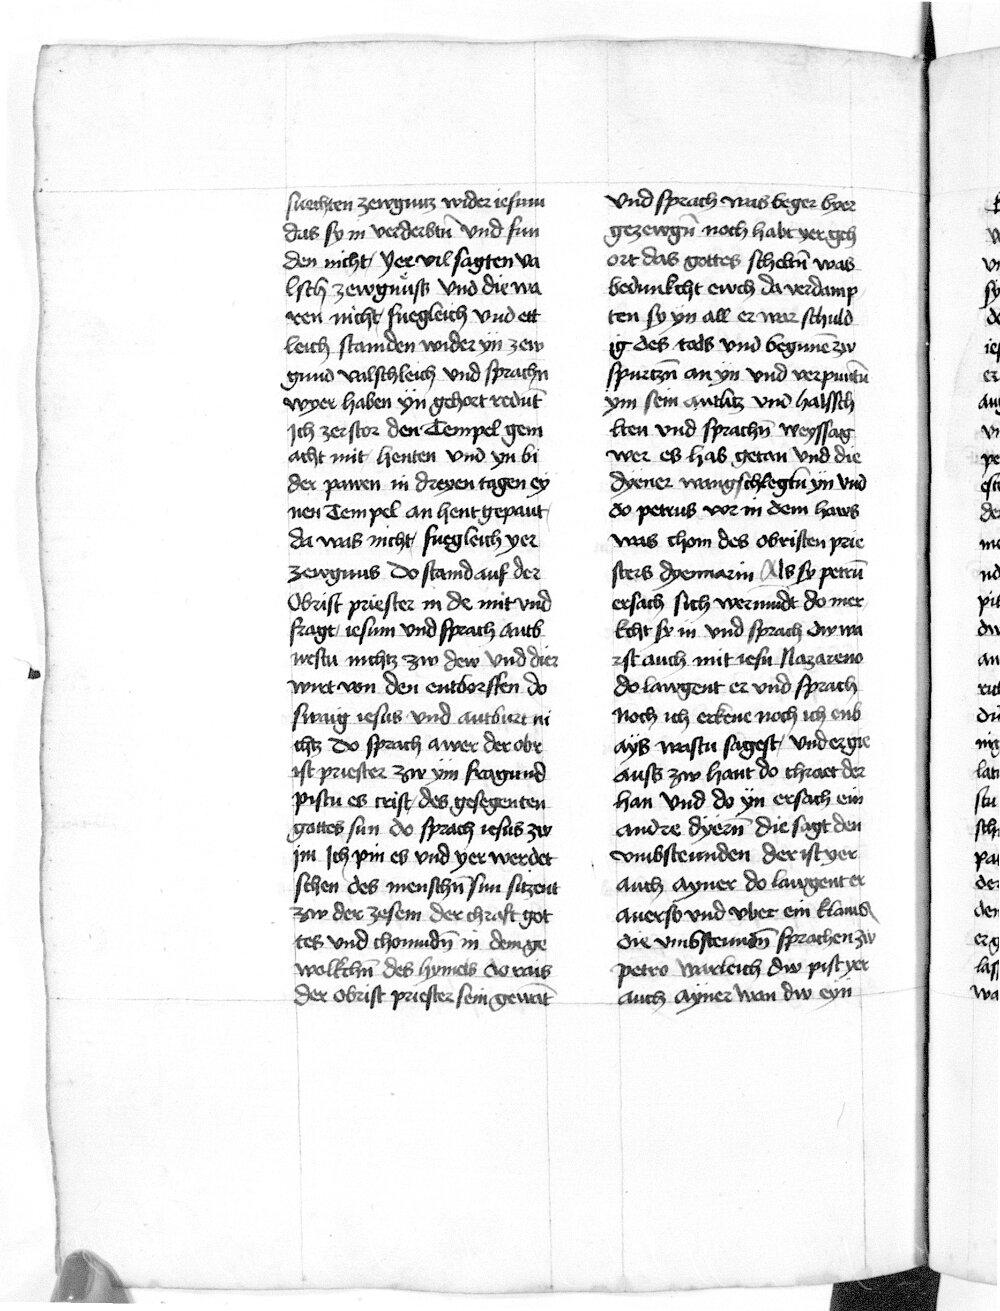 suechten zewgnuz wider iesum
das sy in verderbtn̄ vnd fun
den nicht yer vil sagten va
lsch zewgnuss vnd die wa
ren nicht fuegleich vnd ett
leich stamden wider yn zew
gund valschleich vnd sprachn
wyer haben yn gehort redūt
Ich zerstor den Tempel gem
acht mit henten vnd yn bi
der pawen in dreyen tagen ey
nen Tempel an hent gepaut
da was nicht fuegleich yer
zewgnus Do stamd auf der
Obrist priester in de mit vnd
fragt iesum vnd sprach antb
urestu nichtz zw dew vnd dier
wirt von den entborffen do
swaig iesus vnd antburt ni
chtz Do sprach awer der obr
ist priester zw ym fragund
pistu es crist des gesegenten
gottes sun do sprach iesus zw
im Ich pin es vnd yer werdet
sehen des menschn̄ sun sitzent
zw der zesem der chraft got
tes vnd chomudn̄ in dem ge
wolkchn̄ des hymels do rais
der obrist priester sein gewāt
vnd sprach was beger byer
gezewgn̄ noch habt yer geh
ort das gottes scheltn̄ was
bedunkcht ewch da verdamp
ten sy yn all er war schuld
ig des tods vnd begunē zw
spurtzn̄ an yn vnd verpuntū
ym sein antlitz vnd halssch
lten vnd sprachn̄ weyssag
wer es hab getan vnd die
dyener wangschlegtn̄ yn vnd
do petrus vor in dem haws
was chom des obristen prie
sters dyennarin Als sy petrū
ersach sich wermudt do mer
kcht sy in vnd sprach dw wa
rst auch mit iesu Nazareno
do lawgent er vnd sprach
noch ich erkēne noch ich enb
ays wastu sagest vnd er gie
auss zw hant do chraet der
han vnd do yn ersach ein
andre dyern̄ die sagt den
vmbsteunden der ist yer
auch ayner do lawgent er
auersb vnd vber ein klains
die vmbsteundn̄ sprachen zw
petro warleich dw pist yer
auch ayner wan dw eyn